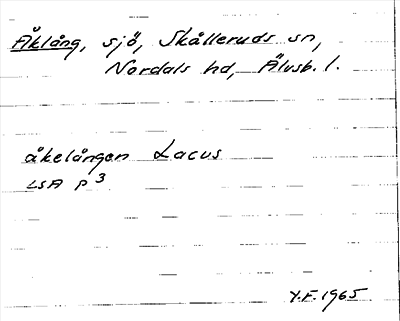 Åklång, sjö, Skålleruds sn,
Nordals hd, Älvsb. l.
åkelången Lacus
LSA P3
Y.F. 1965